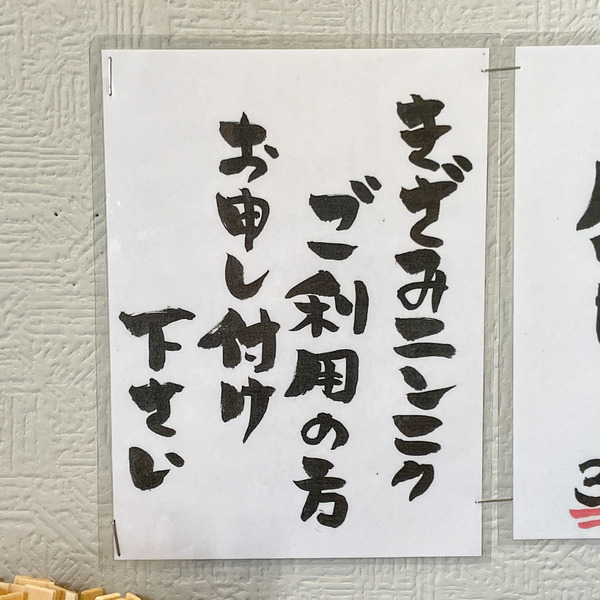 きざみニンニク
ご利用の方
お申し付け
下さい
3